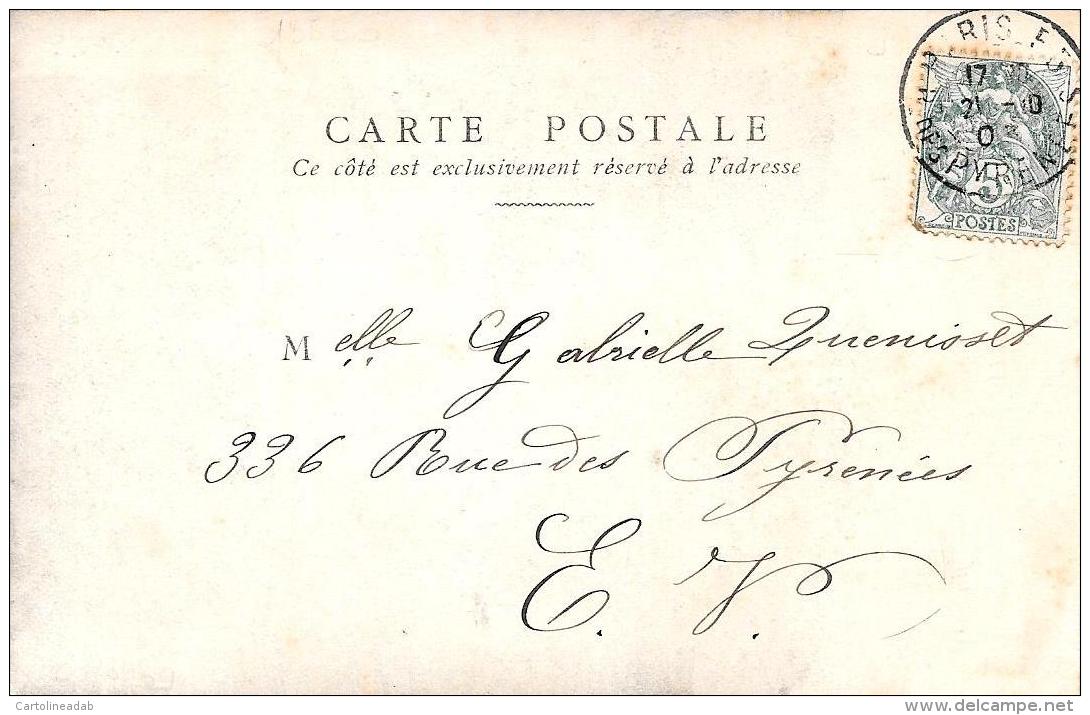 CARTE POSTALE
Ce côté est exclusivement réservé à l'adresse
PARIS
17
21 - 10
0
PYRENEES
5
POSTES
Melle Gabrielle Quenisset
336 Rue des Pyrénées
E. V.
Cartolineadab
delcampe.net